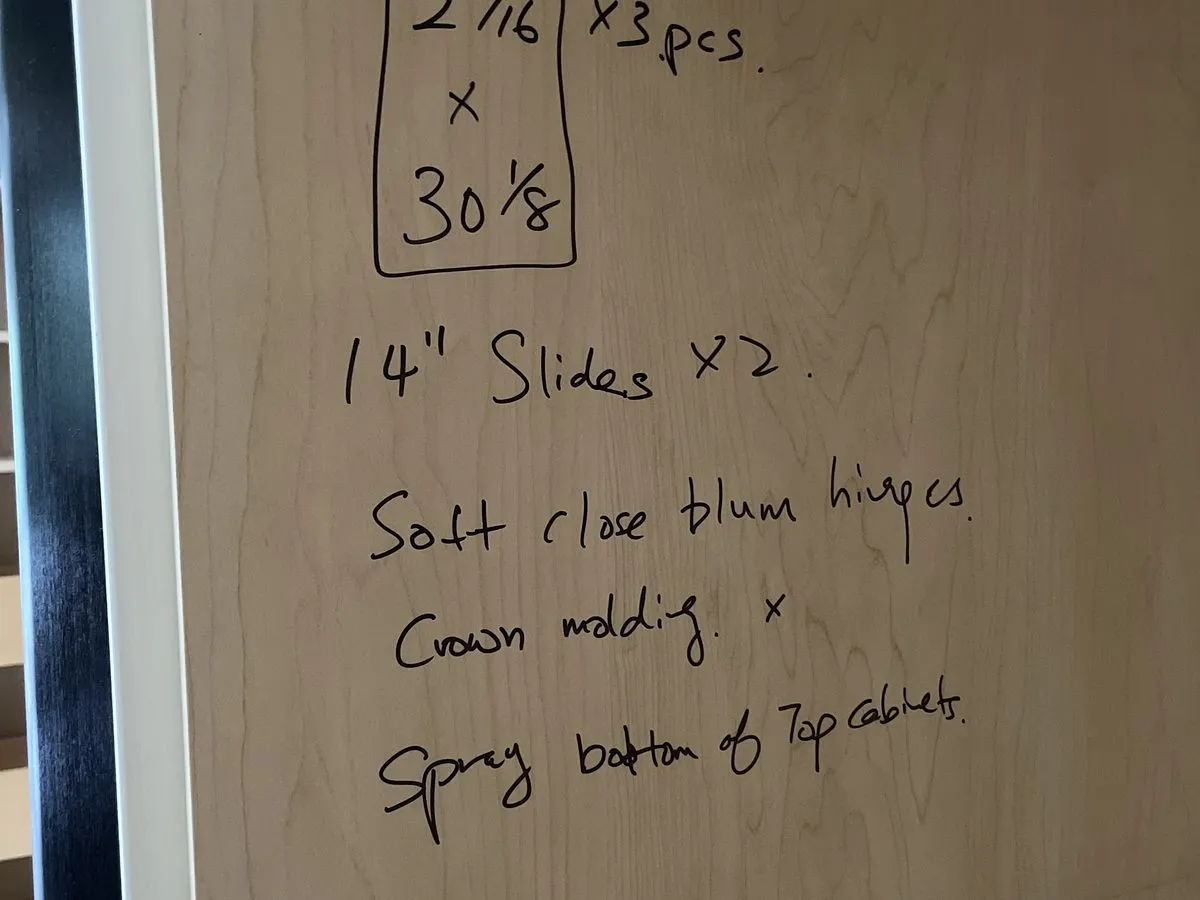 x3 pcs.
x
30 1/8
14" Slides x2.
Soft close blum hinges.
Crown molding. x
Spray bottom of Top Cabinets.